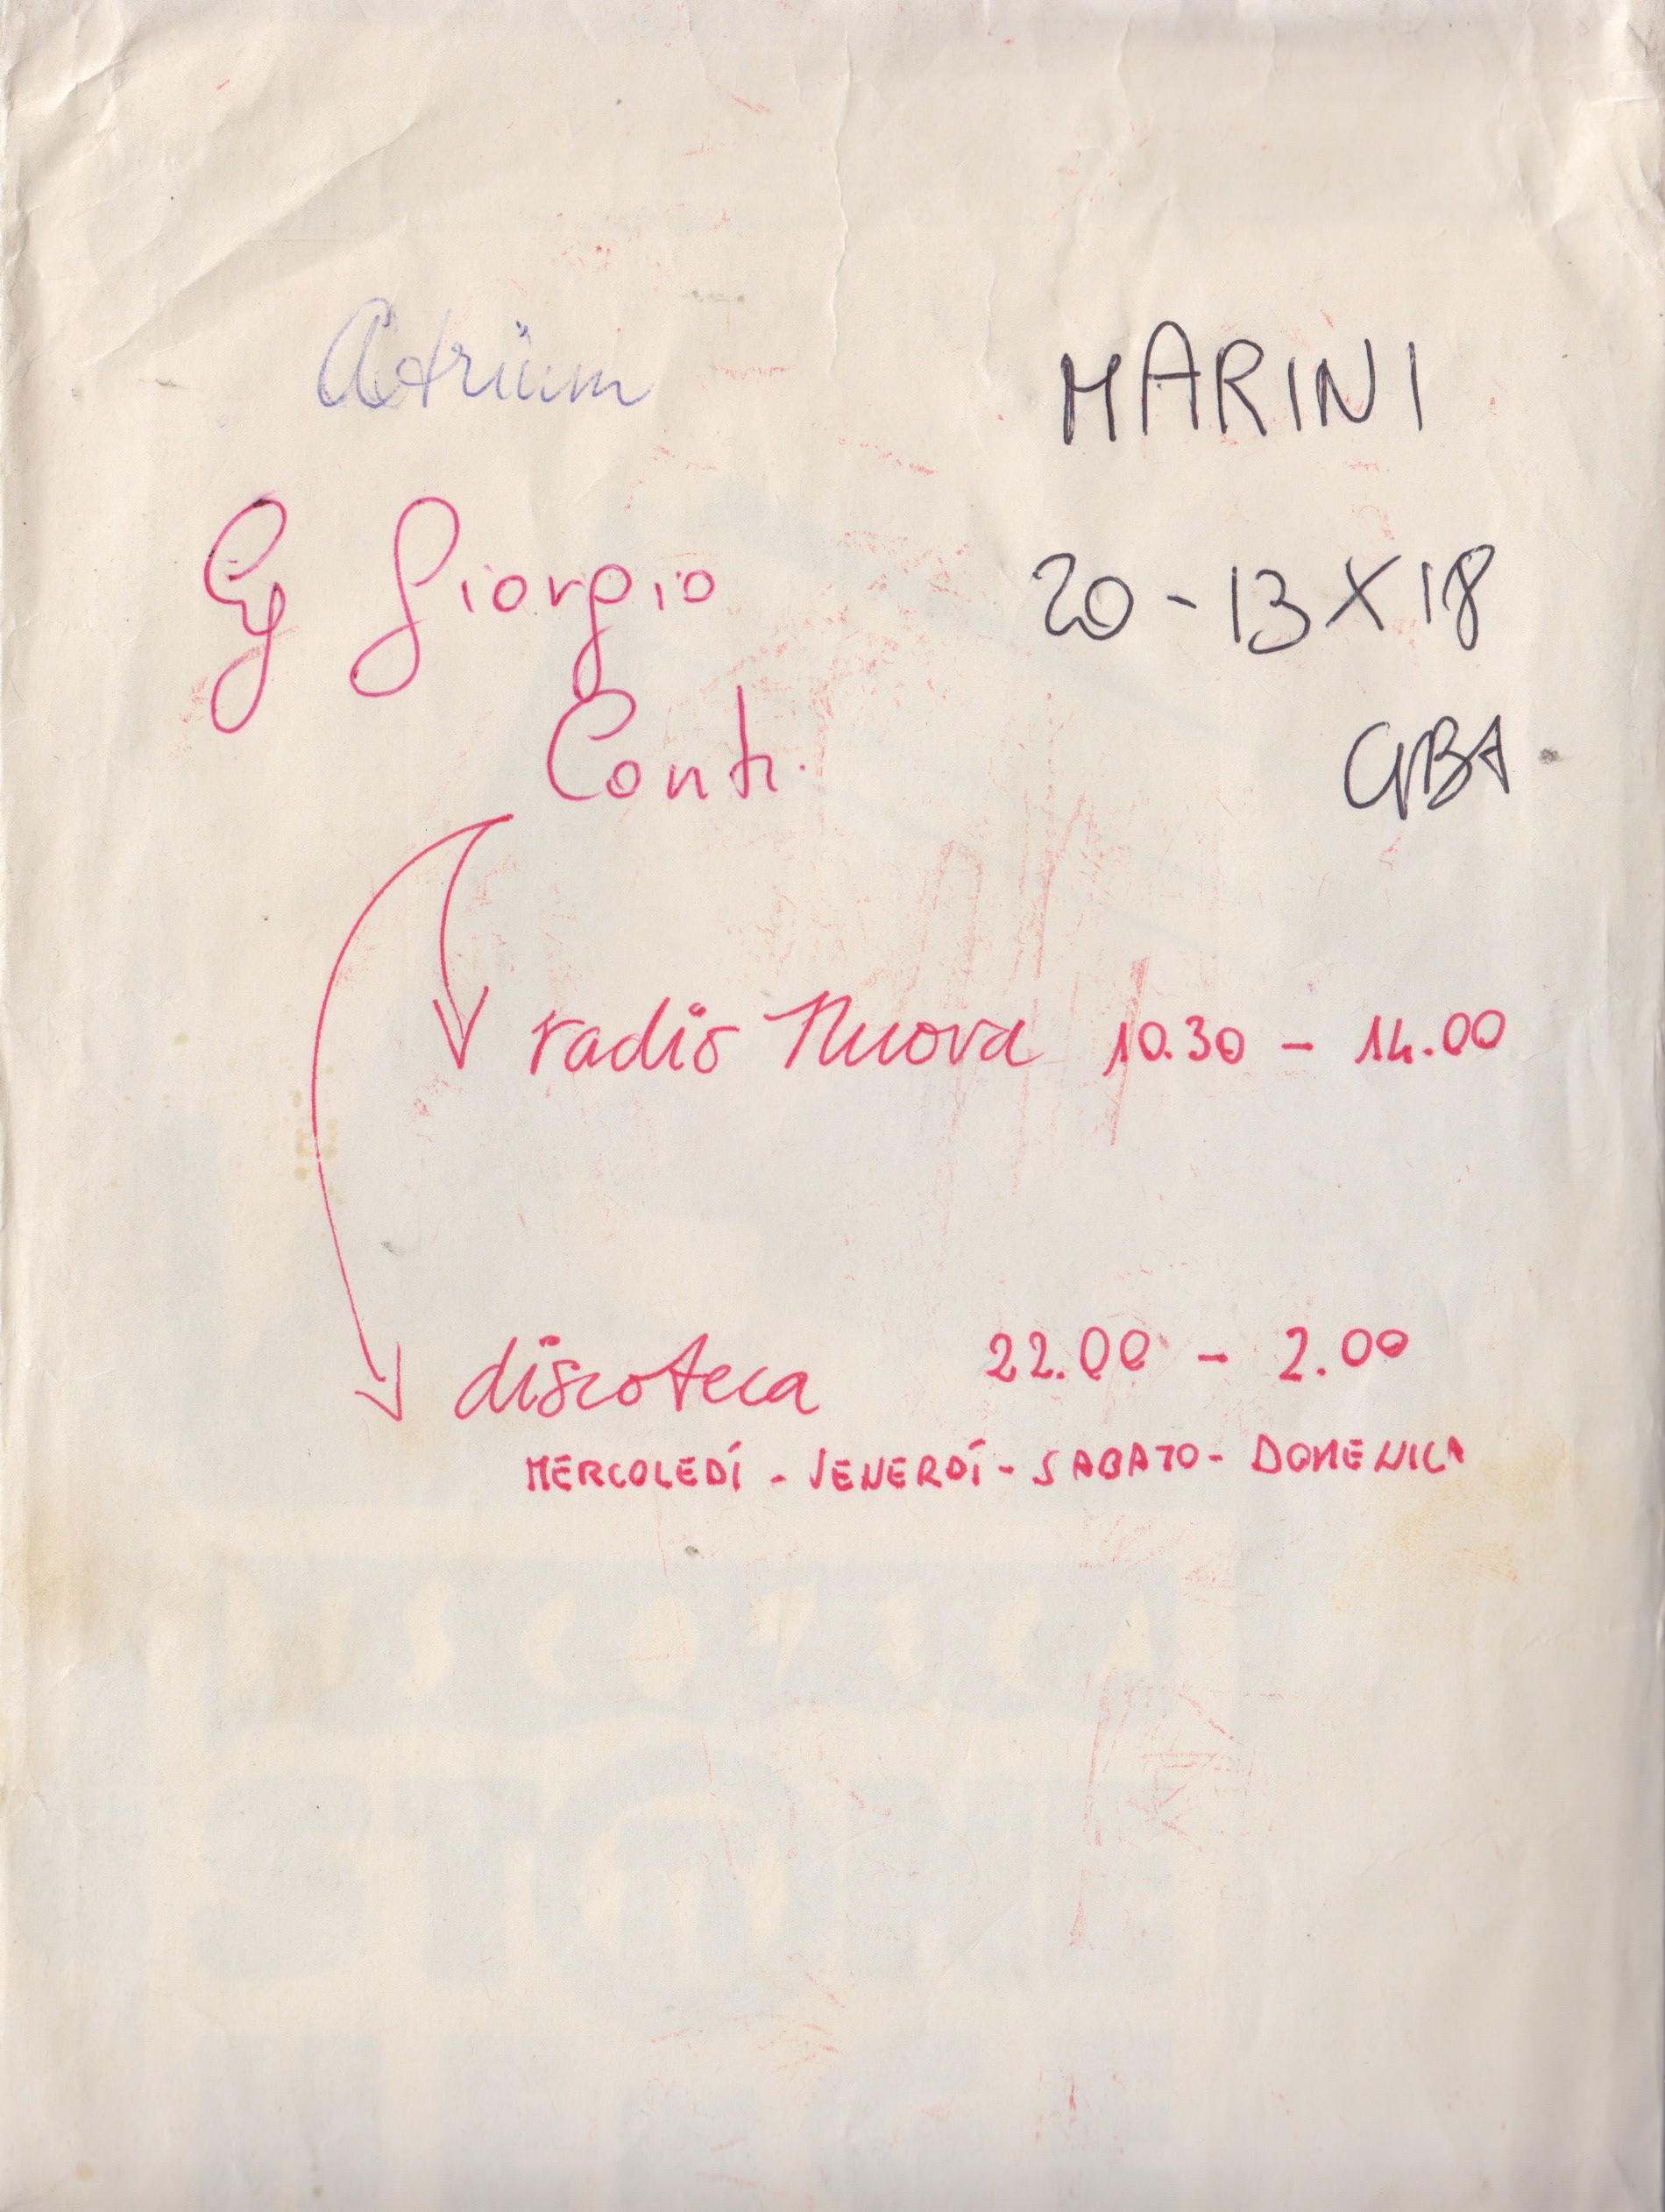 Atrium
MARINI
Giorgio
20 - 13 X 18
Conti.
radio Nuova 10.30 - 14.00
discoteca 22.00 - 2.00
MERCOLEDÍ - VENERDÍ - SABATO - DOMENICA